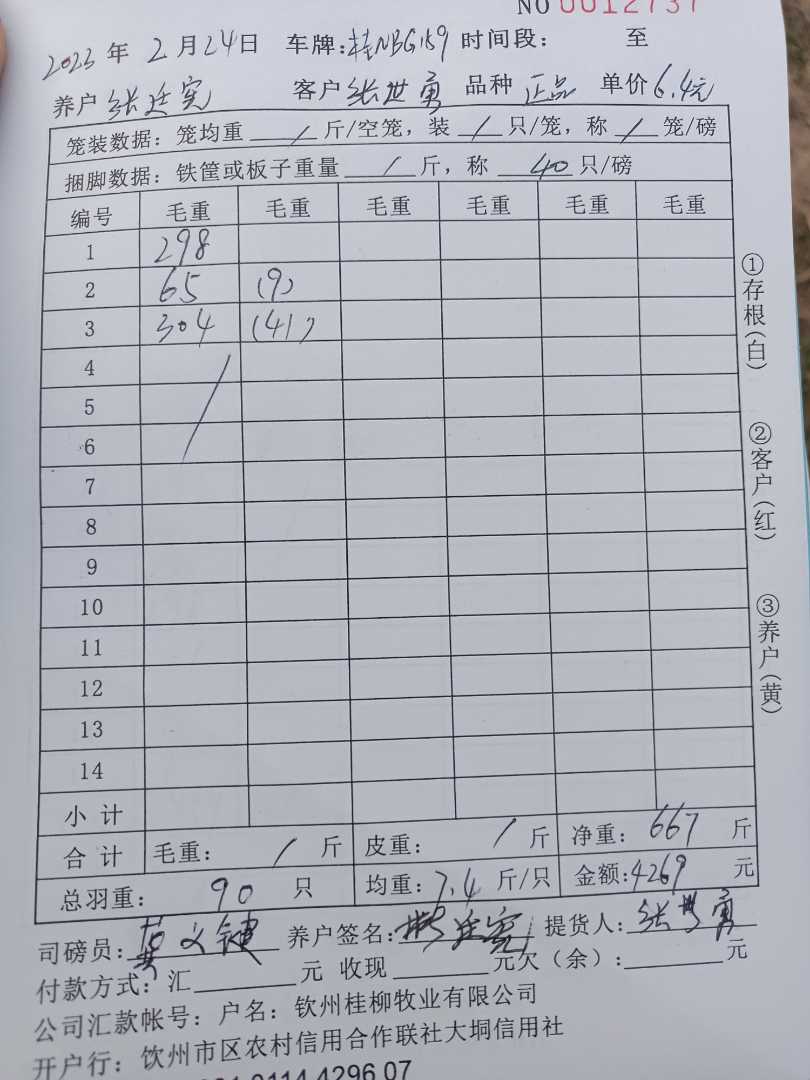 NO 0012737
2023年2月24日 车牌:桂NBG159 时间段: 至
养户 张廷宪 客户 张世勇 品种 正品 单价 6.4元
笼装数据: 笼均重 / 斤/空笼, 装 / 只/笼, 称 / 笼/磅
捆脚数据: 铁筐或板子重量 / 斤, 称 40 只/磅
编号 毛重 毛重 毛重 毛重 毛重 毛重
1 298
2 65 (9)
3 304 (41)
4
5
6
7
8
9
10
11
12
13
14
小计
合计 毛重: / 斤 皮重: / 斤 净重: 667 斤
总羽重: 90 只 均重: 7.4 斤/只 金额: 4269 元
司磅员: 黄文键 养户签名: 张廷宪 提货人: 张世勇
付款方式: 汇 元 收现 元欠(余): 元
公司汇款帐号: 户名: 钦州桂柳牧业有限公司
开户行: 钦州市区农村信用合作联社大垌信用社
0114 4296 07
①存根(白)
②客户(红)
③养户(黄)